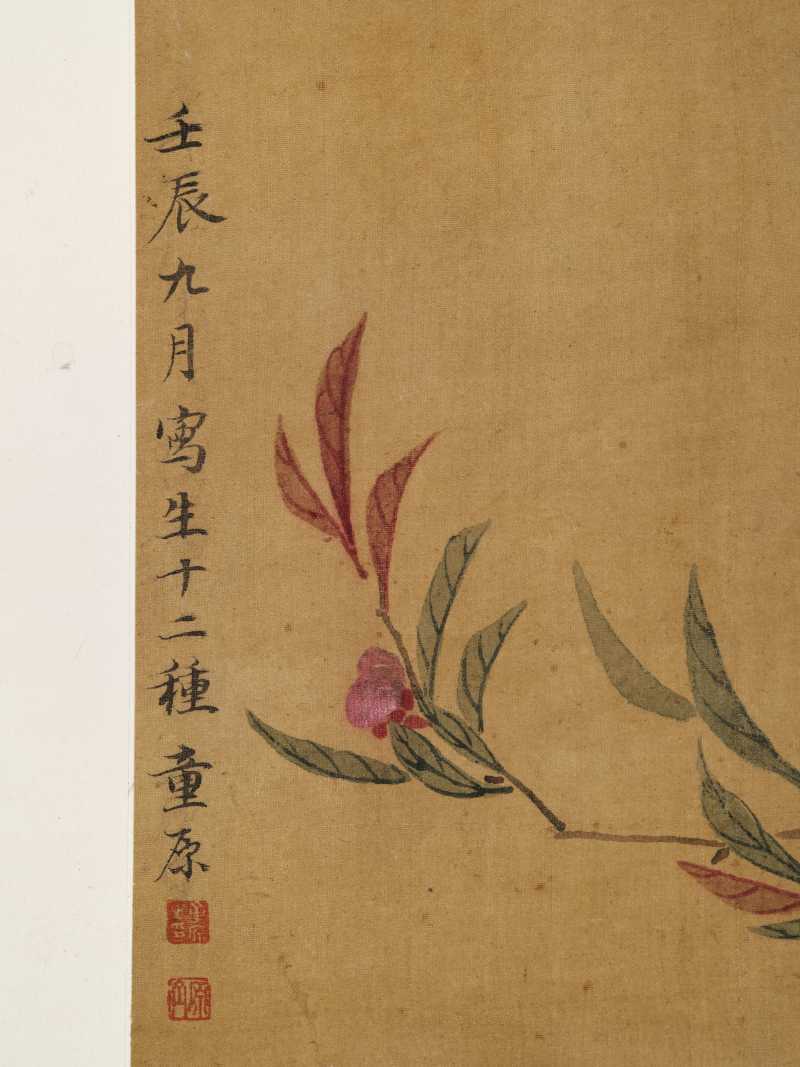 壬辰九月寫生十二種童原